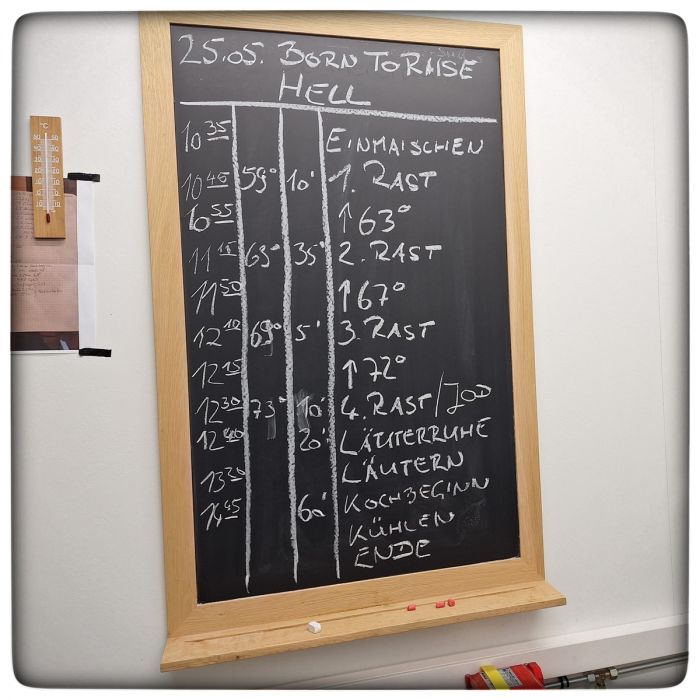 25.05. BORN TO RAISE
HELL
10 35 EINMAISCHEN
10 45 59° 10' 1. RAST
10 55 ↑ 63°
11 15 63° 35' 2. RAST
11 50 ↑ 67°
12 10 69° 5' 3. RAST
12 15 ↑ 72°
12 30 73° 10' 4. RAST / JOD
12 40 20' LÄUTERRUHE
13 20 LÄUTERN
14 45 60' KOCHBEGINN
KÜHLEN
ENDE